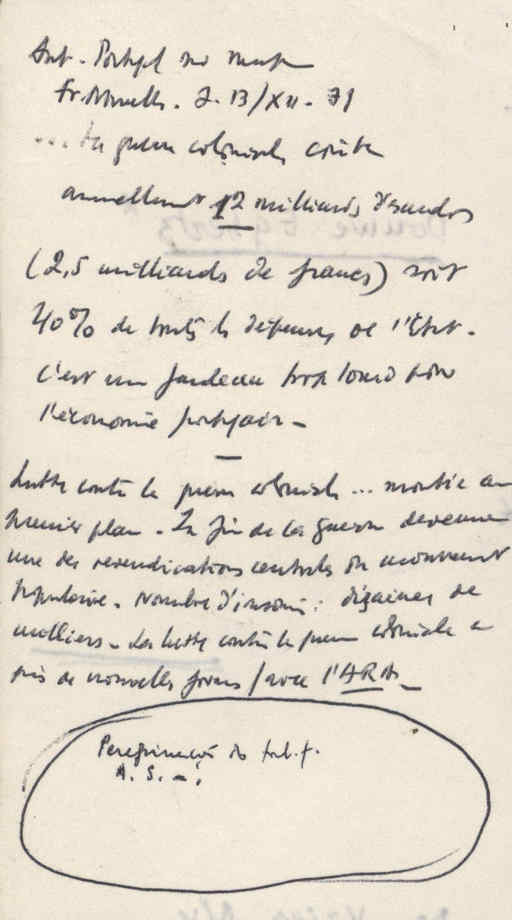 Fr. Nouvelle. 7-13/XII-71
... La guerre coloniale coûte
annuellement 12 milliards d'escudos
(2,5 milliards de francs) soit
40% de toutes les dépenses de l'État.
C'est un fardeau trop lourd pour
l'économie portugaise -
Lutte contre la guerre coloniale ... montée au
premier plan. La fin de la guerre devenue
une des revendications centrales du mouvement
populaire. Nombre d'insoumis : dizaines de
milliers. La lutte contre la guerre coloniale a
pris de nouvelles formes /avec l'ARA.
A. S. -